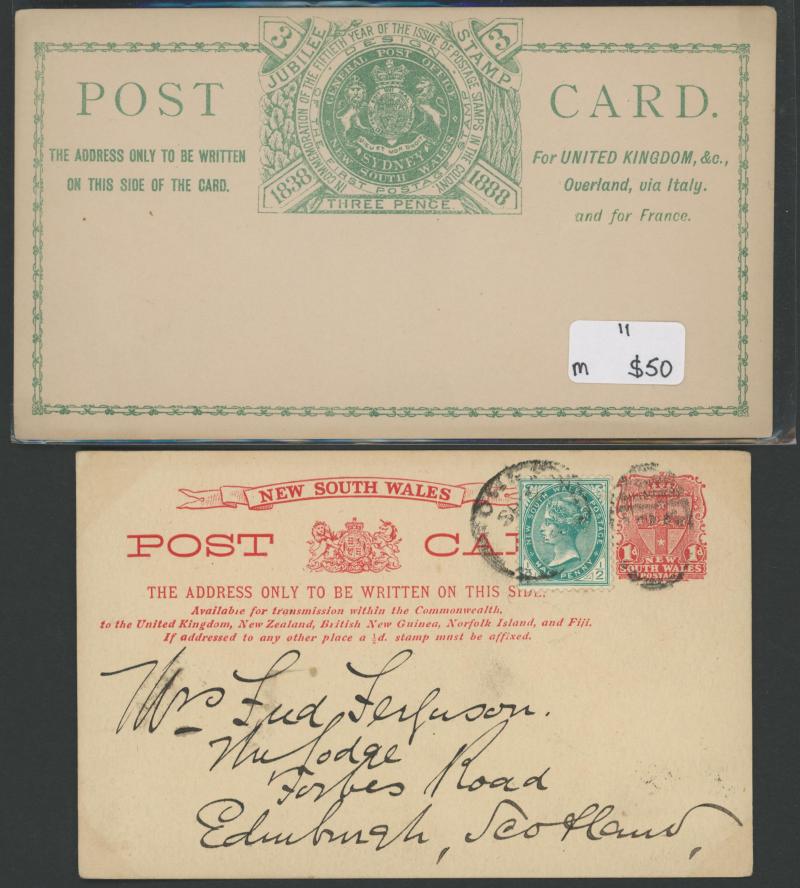 3 JUBILEE STAMP 3
IN COMMEMORATION OF THE FIFTIETH YEAR OF THE ISSUE OF POSTAGE STAMPS IN THE COLONY
DESIGN OF THE FIRST POSTAGE STAMP
GENERAL POST OFFICE
SYDNEY
NEW SOUTH WALES
1838 1888
THREE PENCE
POST CARD.
THE ADDRESS ONLY TO BE WRITTEN
ON THIS SIDE OF THE CARD.
For UNITED KINGDOM, &c.,
Overland, via Italy.
and for France.
11
m $50
NEW SOUTH WALES
POST CA
THE ADDRESS ONLY TO BE WRITTEN ON THIS SIDE.
Available for transmission within the Commonwealth,
to the United Kingdom, New Zealand, British New Guinea, Norfolk Island, and Fiji.
If addressed to any other place a ½d. stamp must be affixed.
NEW SOUTH WALES POSTAGE
HALF PENNY
1d 1d
NEW
SOUTH WALES
POSTAGE
Mrs Fred Ferguson.
The Lodge
Forbes Road
Edinburgh, Scotland,